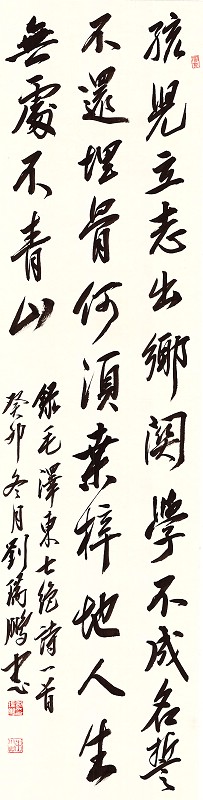 孩兒立志出鄉関學不成名誓
不還埋骨何須桑梓地人生
無處不青山
錄毛澤東七絶詩一首
癸卯冬月劉瑞鵬書